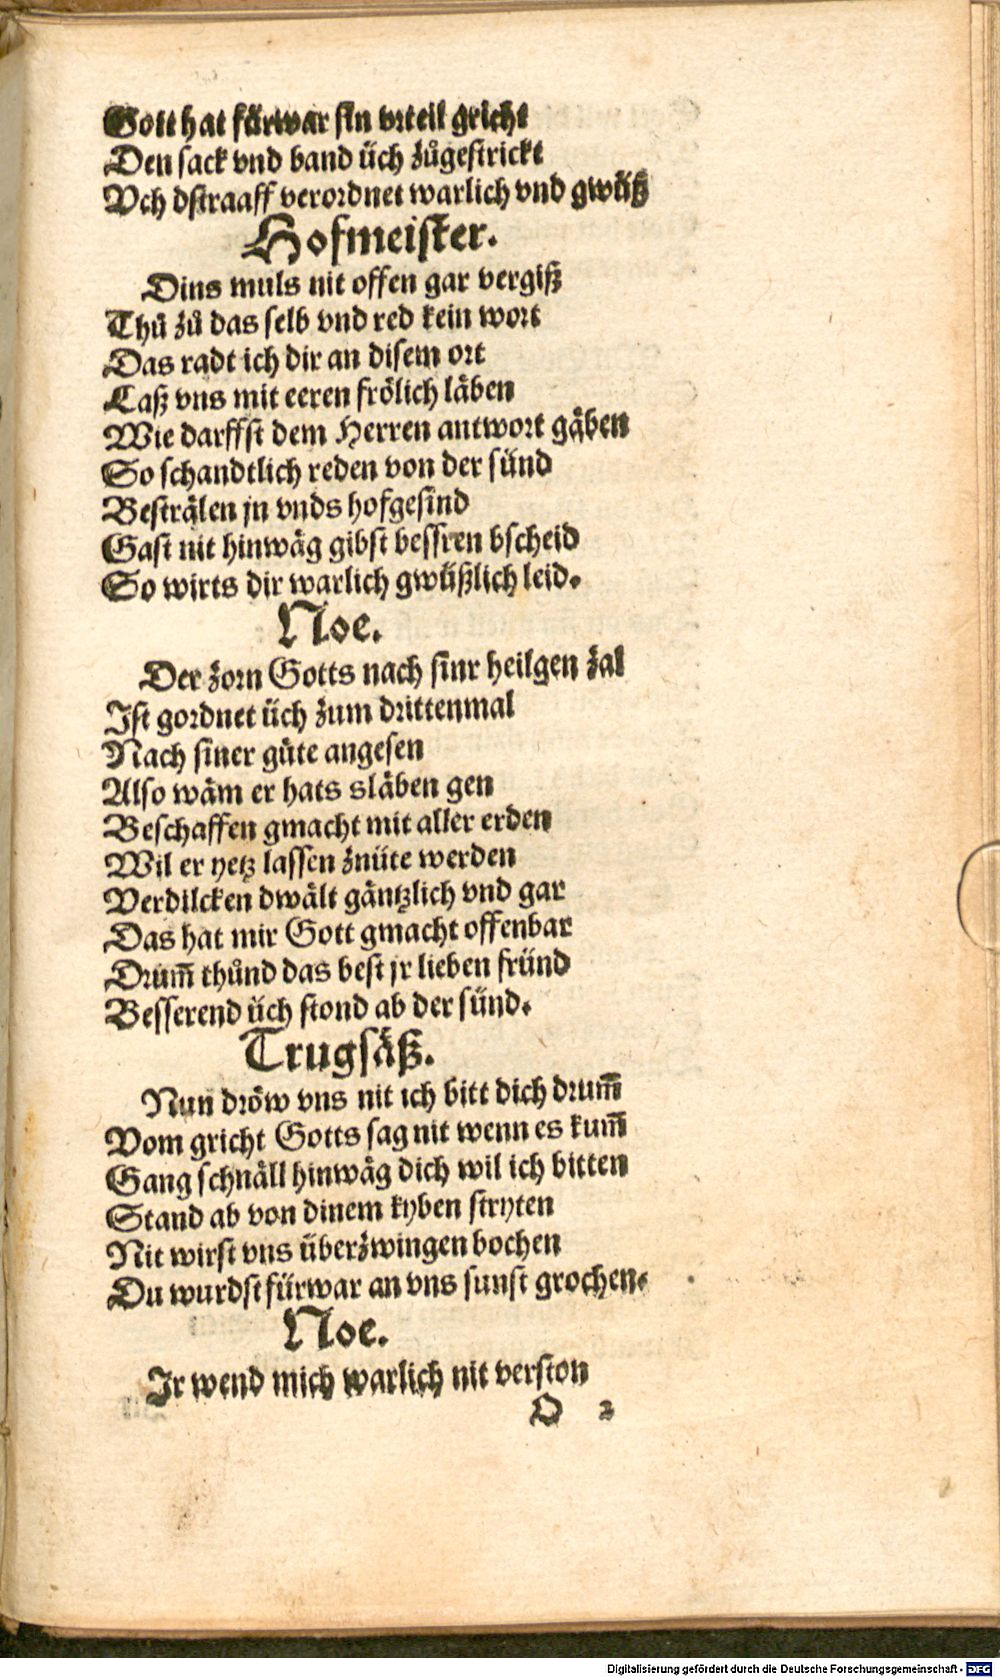 Gott hat fürwar sin vrteil gricht
Den sack vnd band üch zůgestrickt
Vch dstraaff verordnet warlich vnd gwüß
Hofmeister.
Dins muls nit offen gar vergiß
Thů zů das selb vnd red kein wort
Das radt ich dir an disem ort
Laß vns mit eeren frölich läben
Wie darffst dem Herren antwort gäben
So schandtlich reden von der sünd
Besträlen jn vnds hofgesind
Gast nit hinwäg gibst bessren bscheid
So wirts dir warlich gwüßlich leid.
Noe.
Der zorn Gotts nach sinr heilgen zal
Ist gordnet üch zum drittenmal
Nach siner güte angesen
Also wäm er hats släben gen
Beschaffen gmacht mit aller erden
Wil er yetz lassen znüte werden
Verdilcken dwält gäntzlich vnd gar
Das hat mir Gott gmacht offenbar
Drum̄ thůnd das best jr lieben fründ
Besserend üch stond ab der sünd.
Trugsäß.
Nun dröw vns nit ich bitt dich drum̄
Vom gricht Gotts sag nit wenn es kum̄
Gang schnäll hinwäg dich wil ich bitten
Stand ab von dinem kyben stryten
Nit wirst vns überzwingen bochen
Du wurdst fürwar an vns sunst grochen.
Noe.
Ir wend mich warlich nit verston
D 2
Digitalisierung gefördert durch die Deutsche Forschungsgemeinschaft - DFG